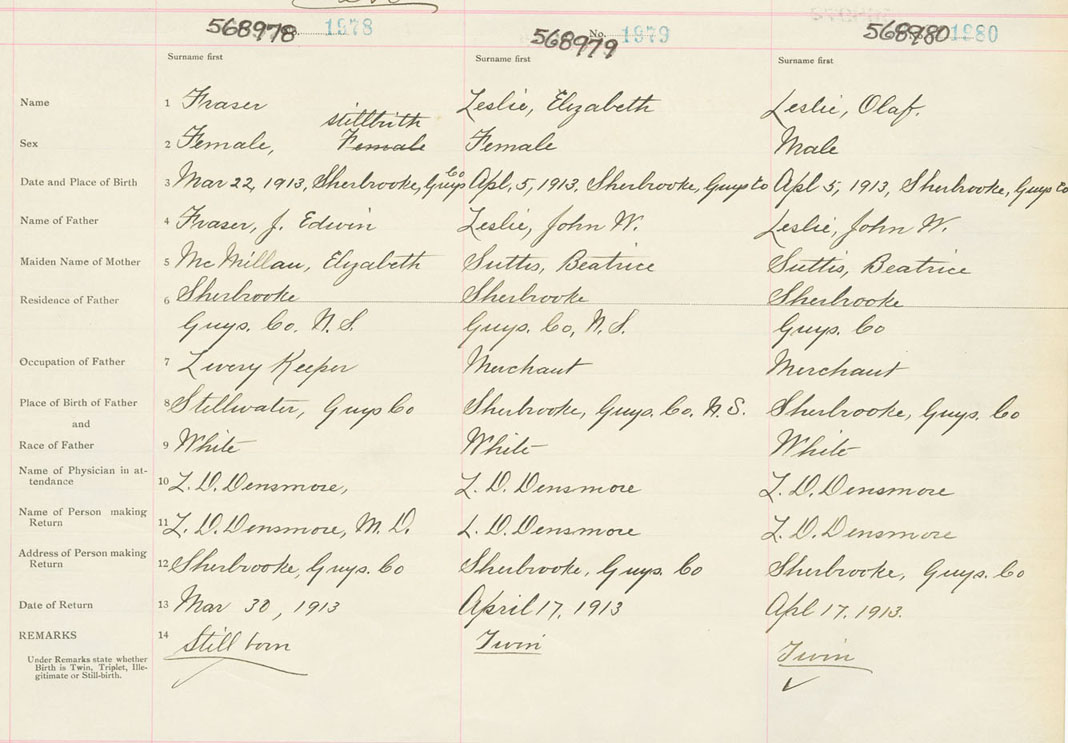 568978 No. 1978 568979 No. 1979 568980 No. 1980
Surname first Surname first Surname first
Name 1 Fraser Leslie, Elizabeth Leslie, Olaf.
stillbirth
Sex 2 Female, Female Female Male
Date and Place of Birth 3 Mar 22, 1913, Sherbrooke, Guys Co Apl, 5, 1913, Sherbrooke, Guys Co Apl 5, 1913, Sherbrooke, Guys Co
Name of Father 4 Fraser, J. Edwin Leslie, John W. Leslie, John W.
Maiden Name of Mother 5 McMillan, Elizabeth Suttis, Beatrice Suttis, Beatrice
Residence of Father 6 Sherbrooke Sherbrooke Sherbrooke
Guys. Co. N.S. Guys. Co, N.S. Guys. Co
Occupation of Father 7 Livery Keeper Merchant Merchant
Place of Birth of Father 8 Stillwater, Guys Co Sherbrooke, Guys. Co. N.S. Sherbrooke, Guys. Co
and
Race of Father 9 White White White
Name of Physician in at-
tendance 10 L. D. Densmore, L. D. Densmore L. D. Densmore
Name of Person making
Return 11 L. D. Densmore, M.D. L. D. Densmore L. D. Densmore
Address of Person making
Return 12 Sherbrooke, Guys. Co Sherbrooke, Guys. Co Sherbrooke, Guys. Co
Date of Return 13 Mar 30, 1913 April 17, 1913 Apl 17, 1913.
REMARKS 14 Still born Twin Twin
Under Remarks state whether
Birth is Twin, Triplet, Ille-
gitimate or Still-birth.